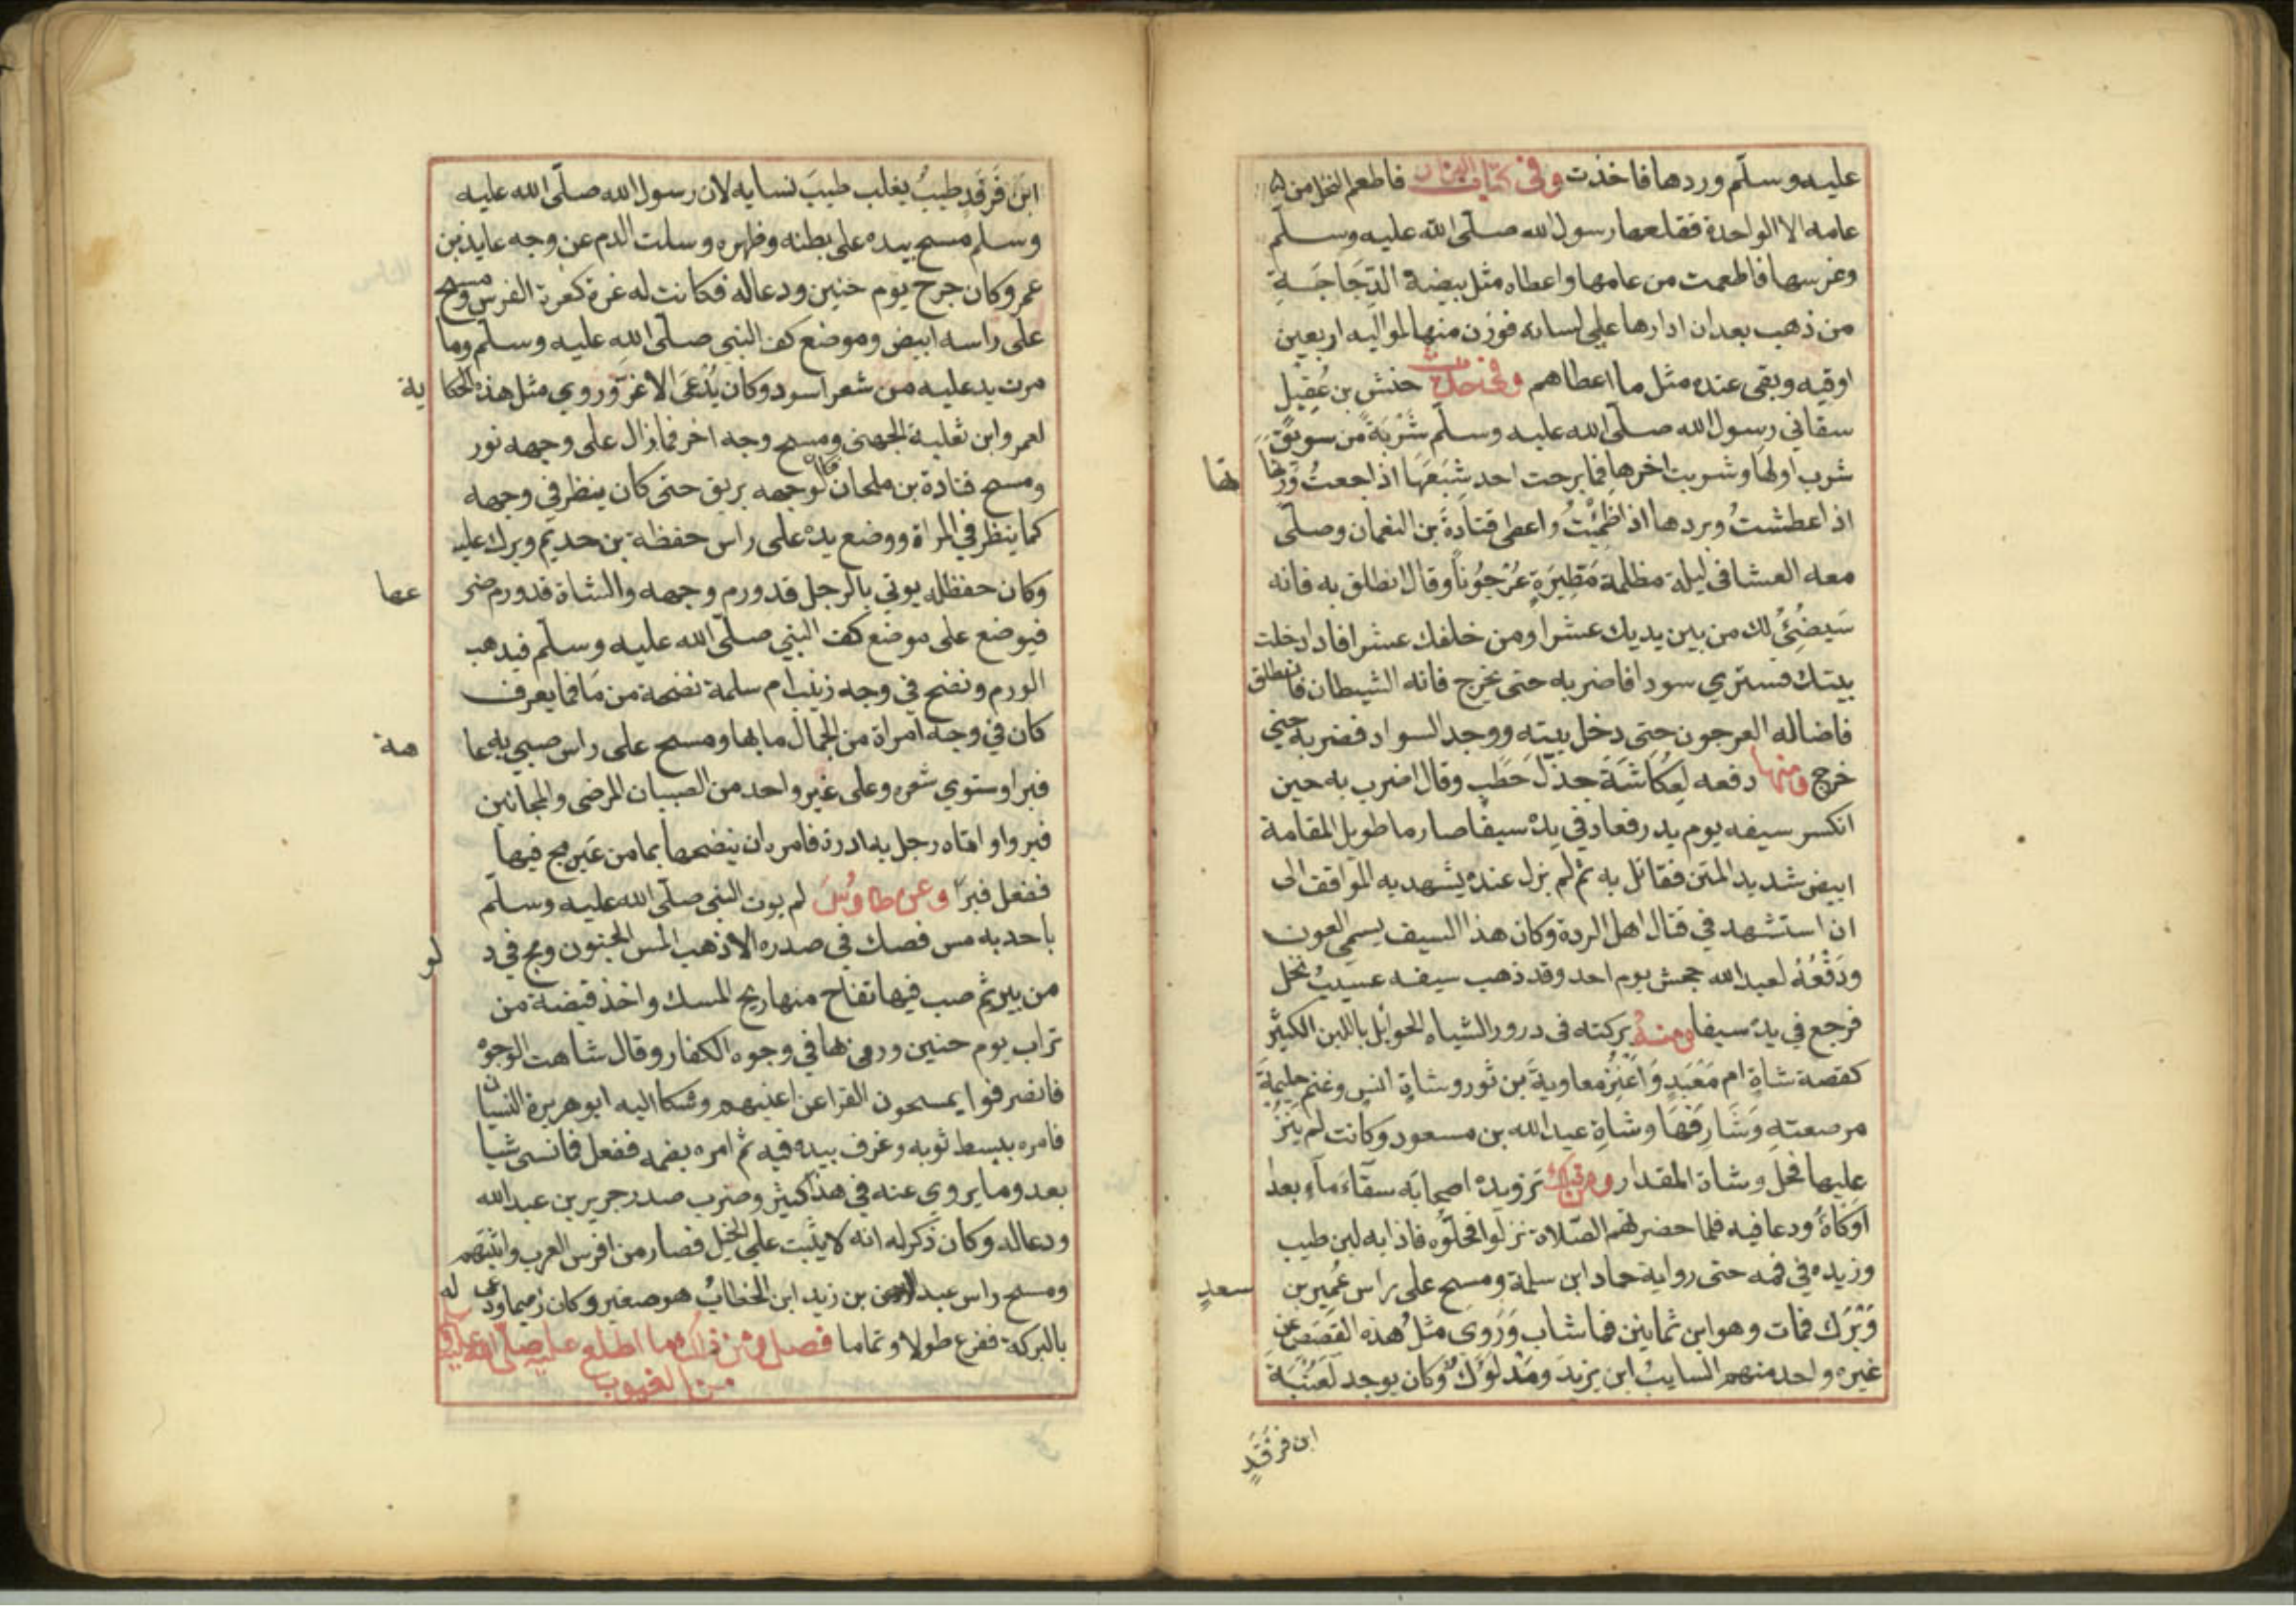 عليه وسلّم وردها فاخذت وفى كتاب البزار فاطعم النخل من
عامه الا الواحدة فقلعها رسول الله صلّى الله عليه وسلّم
وغرسها فاطعمت من عامها واعطاه مثل بيضة الدَّجَاجَةِ
من ذهب بعد ان ادارها على لسانه فوزن منها لمواليه اربعين
اوقيه وبقى عنده مثل ما اعطاهم وفى حديث حنش بن عُقيلٍ
سقاني رسول الله صلّى الله عليه وسلّم شَرْبةً من سويقٍ
شرب اولها وشربت اخرها فما برحت احد شِبَعَهَا اذا جعتُ وَريّها
اذا عطشتُ وبردها اذا ظمِئْتُ واعطى قتادةَ بن النعمان وصلّى
معه العشا فى ليلة مظلمة مَطِيرَةٍ عُرْجُوناً وقال انطلق به فانه
سَيضُئُ لك من بين يديك عشرا ومن خلفك عشرا فاذا دخلت
بيتك فسترى سودا فاضربه حتى يخرج فانه الشيطان فانطلق
فاضاله العرجون حتى دخل بيته ووجد السواد فضربه حتي
خرج ومنها دفعه لِعُكاشَةَ جذلَ حَطَبٍ وقال اضرب به حين
انكسر سيفه يوم بدر فعاد في يدهْ سيفا صارما طويل المقامة
ابيض شديد المتن فقاتل به ثم لم يزل عنده يشهد به المواقف الى
ان استشهد في قتال اهل الردة وكان هذا السيف يسمى العون
ودَفْعُهُ لعبد الله جحش يوم احد وقد ذهب سيفه عسيبُ نخل
فرجع في يدهْ سيفا ومنهُ بركته فى درور الشياه الحوايل باللبن الكثير
كقصة شاة ام مَعْبَدٍ وَاَعْنُزُ معاوية بن ثور وشاةِ انسٍ وغنم حليمةَ
مرضعته وَشَارِفهَا وشاةِ عبد الله بن مسعود وكانت لم يَنْزُ
عليها فحل وشاة المقداد ومن ذلك تزويده اصحابَه سقاءَ ماءٍ بعد
اوكاهُ ودعا فيه فلما حضرتهم الصّلاة نزلوا فحلّوه فاذا به لبن طيب
وزبده في فمه حتى رواية حماد ابن سلمة ومسح على راس عُمير بن سعدٍ
وَبَرَك فمات وهو ابن ثمانين فما شاب وَرُوَى مثلُ هذه القَصَصِ عن
غيره واحد منهم السايبُ ابن يزيدَ ومَدْلُوكٌ وكان يوجد لعُتْبَةَ
ابن فَرقَدٍ
ابن فَرقَدٍ طيبُ يغلب طيبَ نسايه لان رسول الله صلّى الله عليه
وسلم مسح بيده على بطنه وظهره وسلت الدم عن وجه عايذ بن
عمرو كان جرح يوم حنين ودعاله فكانت له غرة كغرة الفرس ومسح
على راسه ابيض وموضع كف النبى صلّى الله عليه وسلّم وما
مرت يد عليه من شعر اسود وكان يُدْعَى الاغرّ وروي مثل هذه الحكاية
لعمرو ابن ثعلبة الجهنى ومسح وجه اخر فما زال على وجهه نور
ومسح قتادة بن ملحان فكان لوجهه بريق حتى كان ينظر في وجهه
كما ينظر في المراة ووضع يدهْ على راس حفظة بن حديم وبرك عليه
وكان حفظله يوتي بالرجل قد ورم وجهه والشاة قد ورم ضرعها
فيوضع على موضع كف النبي صلّى الله عليه وسلّم فيدهب
الورم ونضح في وجه زينب ام سلمة نضحة من ما فما يعرف
كان في وجه امراة من الجمال ما بها ومسح على راس صبي به عاهة
فبرا وستوي شعره وعلى غير واحد من الصبيان المرضى والمجانين
فبروا واتاه رجل به ادرة فامره ان ينضحها بما من عين مج فيها
ففعل فبرًا وعن طاوُسَ لم يوت النبى صلّى الله عليه وسلّم
باحد به مس فصك في صدره الا ذهب المس الجنون ومج في دلو
من بير ثم صب فيها تفاح منها ريح المسك واخذ قبضة من
تراب يوم حنين ورمى بها في وجوه الكفار وقال شاهت الوجوهْ
فانصرفوا يمسحون القزا عن اعينهم وشكا اليه ابو هريرة النسيان
فامره ببسط ثوبه وغرف بيده فيه ثم امره بضمه ففعل فانسى شيا
بعد وما يروي عنه في هذا كثير وضرب صدر جرير بن عبد الله
ودعاله وكان ذكر له انه لا يثبت على الخيل فصار من افرس العرب واثبتهم
ومسح راس عبد الرحمن بن زيد ابن الخطاب هو صغير وكان زميما ودعى له
بالبركة ففرع طولا وتماما فصل ومن ذلك ما اطلع عليه صلّى الله عليه
من الغيوب